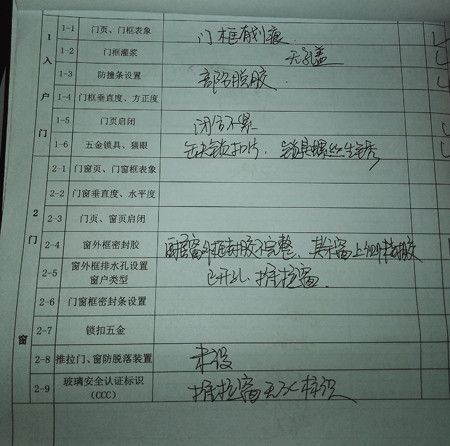 1 入户门
1-1 门页、门框表象 门框有划痕
1-2 门框灌浆 无孔盖
1-3 防撞条设置 部分脱胶
1-4 门框垂直度、方正度
1-5 门页启闭 闭合不紧
1-6 五金锁具、猫眼 缺锁扣片、锁具螺丝生锈
2 门窗
2-1 门窗页、门窗框表象
2-2 门窗垂直度、水平度
2-3 门页、窗页启闭
2-4 窗外框密封胶 厨房窗外框封胶不完整、其余窗上
2-5 窗外框排水孔设置 窗户类型 已开孔、推拉窗
2-6 门窗框密封条设置
2-7 锁扣五金
2-8 推拉门、窗防脱落装置 未设
2-9 玻璃安全认证标识 (CCC) 推拉窗无3C标识